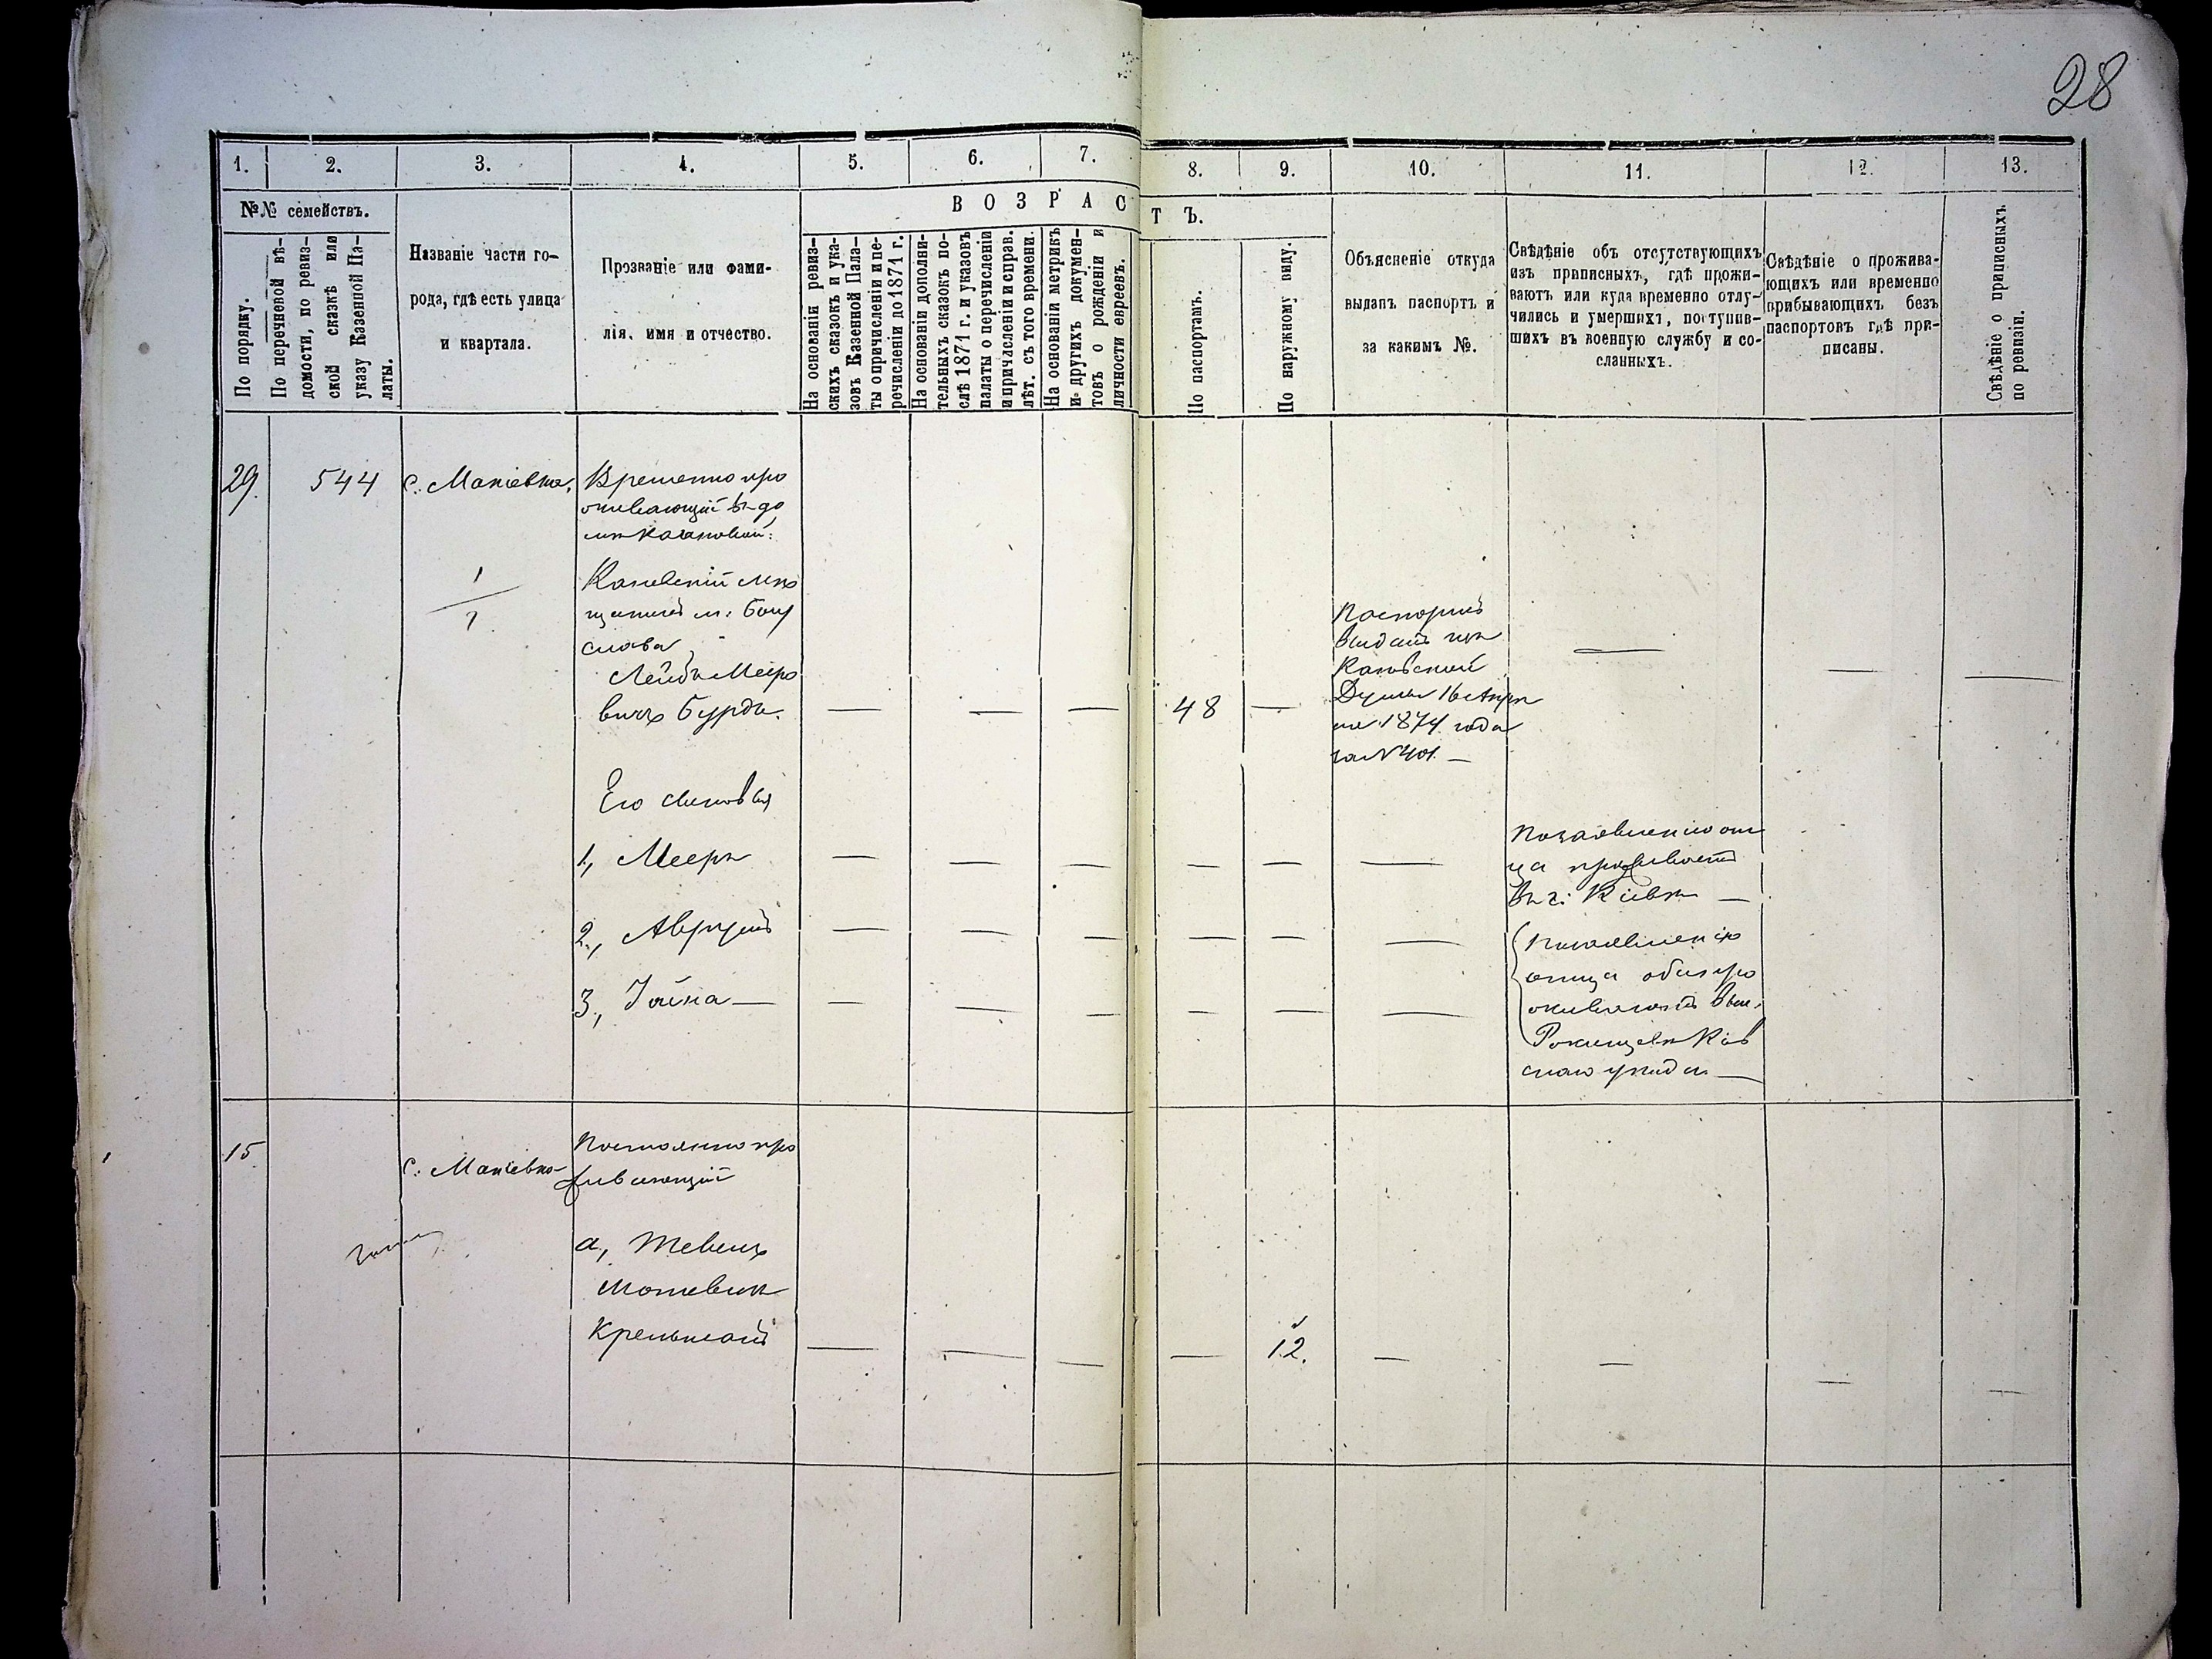 28
1.
2.
3.
4.
5.
6.
7.
8.
9.
10.
11.
12.
13.
№№ семействъ.
По порядку.
По перечневой вѣ-
домости, по ревиз-
ской сказкѣ или
указу Казенной Па-
латы.
Названіе части го-
рода, гдѣ есть улица
и квартала.
Прозваніе или фами-
лія, имя и отчество.
ВОЗРАСТЪ.
На основаніи ревиз-
скихъ сказокъ и ука-
зовъ Казенной Пала-
ты о причисленіи и пе-
речисленіи до 1871 г.
На основаніи дополни-
тельныхъ сказокъ по-
слѣ 1871 г. и указовъ
палаты о перечисленіи
и причисленіи и справ.
лѣт. съ того времени.
На основаніи метрикъ
и другихъ докумен-
товъ о рожденіи и
личности евреевъ.
По паспортамъ.
По наружному виду.
Объясненіе откуда
выданъ паспортъ и
за какимъ №.
Свѣдѣніе объ отсутствующихъ
изъ приписныхъ, гдѣ прожи-
ваютъ или куда временно отлу-
чились и умершихъ, поступив-
шихъ въ военную службу и со-
сланныхъ.
Свѣдѣніе о прожива-
ющихъ или временно
прибывающихъ безъ
паспортовъ гдѣ при-
писаны.
Свѣдѣніе о приписныхъ
по ревизіи.
29.
544
с. Макіевка.
1
1
Временно про
живающій въ до
мѣ
Каневскій мѣ
щанинъ м: Богу
слава
Лейба Меѣро
вичъ Бурда.
— — — 48 —
Паспортъ
выданъ изъ
Каневской
Думы 16 Апрѣ
ля 1874 года
за № 401. —
— — —
Его сыновья
1, Мееръ — — — — — —
По заявленію от
ца проживаетъ
въ г: Кіевѣ —
2, Аврумъ — — — — — —
3, Іойна — — — — — — —
По заявленію
отца оба про
живаютъ въ м.
Кіев
скаго уѣзда —
15
с. Макіевка
Постоянно про
живающій
а, Тевель
Мошевич
— — — — 12. — — — —